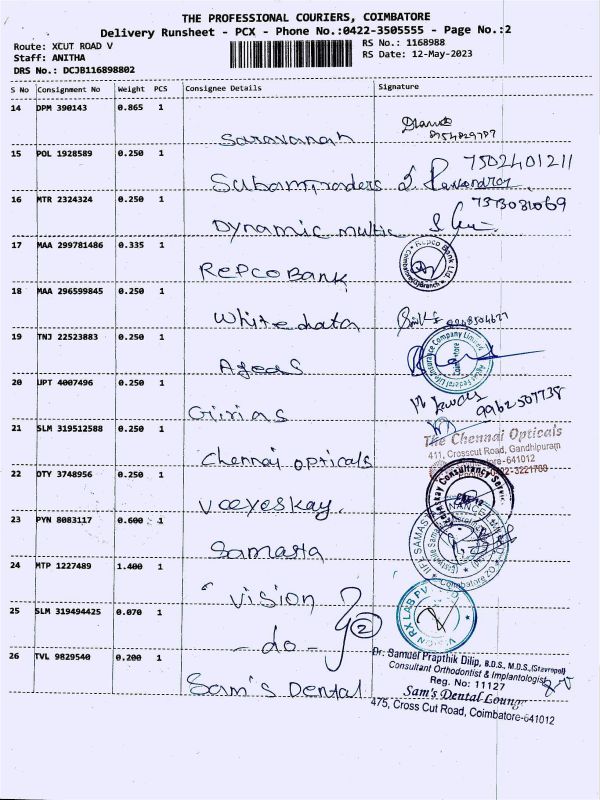 THE PROFESSIONAL COURIERS, COIMBATORE
Delivery Runsheet - PCX - Phone No.:0422-3505555 - Page No.:2
Route: XCUT ROAD V
RS No.: 1168988
Staff: ANITHA
RS Date: 12-May-2023
DRS No.: DCJB116898802
S No Consignment No Weight PCS Consignee Details Signature
14 DPM 390143 0.865 1
Saravanan
8754029707
15 POL 1928589 0.250 1
7502401211
Subam Traders
16 MTR 2324324 0.250 1
7373081069
Dynamic multic
17 MAA 299781486 0.335 1
Repco Bank Ltd.
REPCO BANK
18 MAA 296599845 0.250 1
White data
19 TNJ 22523883 0.250 1
Ageas
20 UPT 4007496 0.250 1
9962507738
Girias
21 SLM 319512588 0.250 1
The Chennai Opticals
411, Crosscut Road, Gandhipuram
Coimbatore-641012
Chennai opticals
22 DTY 3748956 0.250 1
Veeyeskay.
23 PYN 8083117 0.600 1
Samasta
24 MTP 1227489 1.400 1
Vision
2
25 SLM 319494425 0.070 1
- do -
26 TVL 9829540 0.200 1
Dr. Samuel Prapthik Dilip, B.D.S., M.D.S.,(Stavropol)
Consultant Orthodontist & Implantologist
Reg. No: 11127
Sam's Dental
Sam's Dental Lounge
475, Cross Cut Road, Coimbatore-641012